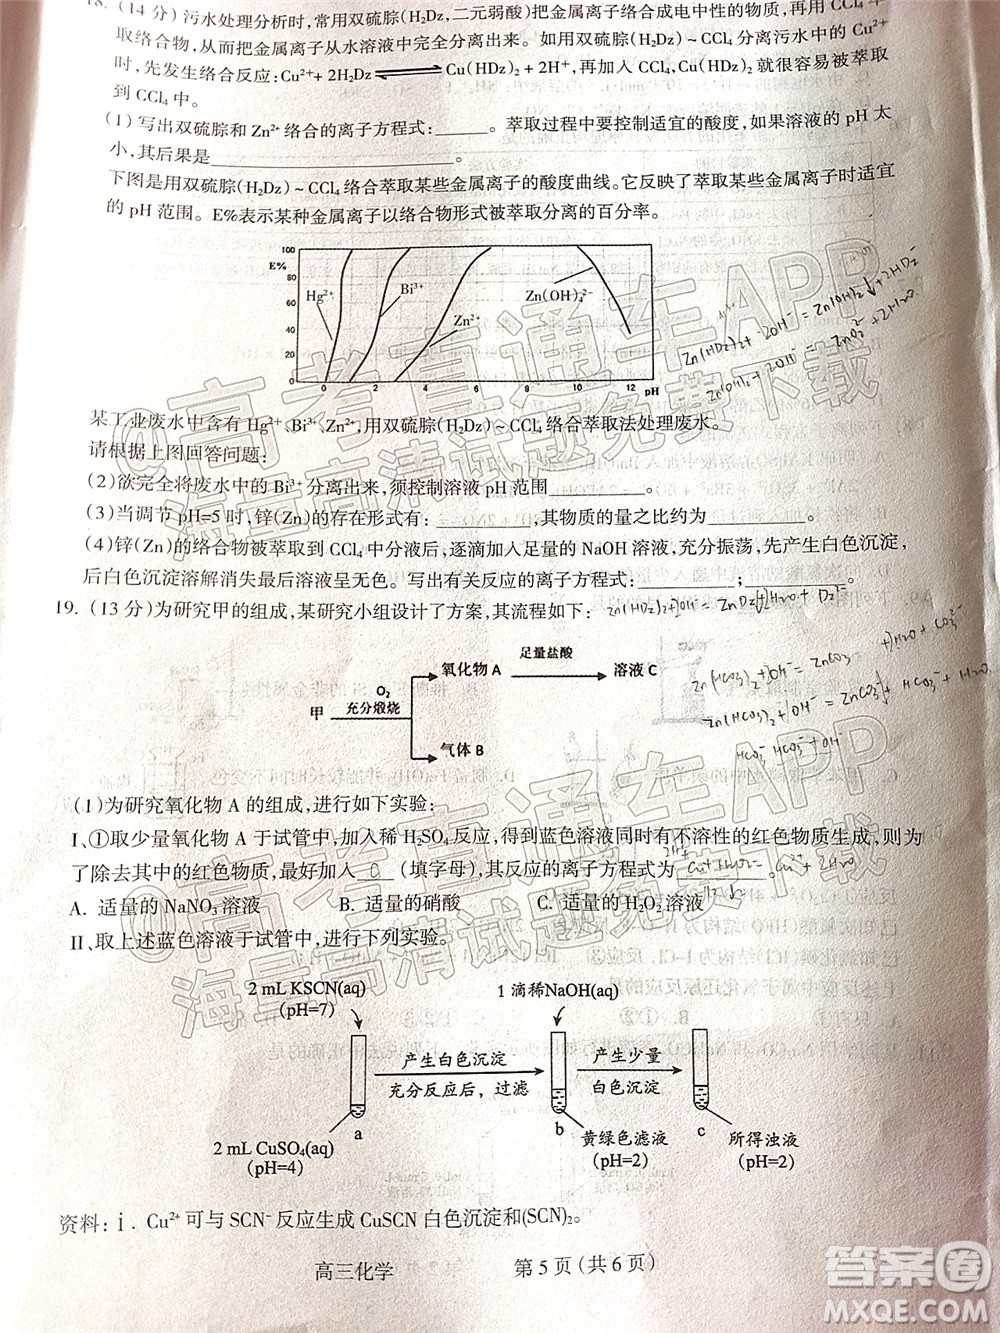 18.(14分)污水处理分析时,常用双硫腙(H₂Dz,二元弱酸)把金属离子络合成电中性的物质,再用 CCl₄ 萃
取络合物,从而把金属离子从水溶液中完全分离出来。如用双硫腙(H₂Dz)~CCl₄ 分离水中的 Cu²⁺
时,先发生络合反应:Cu²⁺+2H₂Dz⇌Cu(HDz)₂+2H⁺,再加入 CCl₄,Cu(HDz)₂ 就很容易被萃取
到 CCl₄ 中。
(1)写出双硫腙和 Zn²⁺ 络合的离子方程式:______。萃取过程中要控制适宜的酸度,如果溶液的 pH 太
小,其后果是______。
下图是用双硫腙(H₂Dz)~CCl₄ 络合萃取某些金属离子的酸度曲线。它反映了萃取某些金属离子时适宜
的 pH 范围。E%表示某种金属离子以络合物形式被萃取分离的百分率。
100
E%
80
60
40
20
0
Hg²⁺
Bi³⁺
Zn²⁺
Zn(OH)₄²⁻
0 2 4 6 8 10 12 pH
Zn(HDz)₂+2OH⁻=Zn(OH)₂↓+2HDz⁻
Zn(OH)₂+2OH⁻=ZnO₂²⁻+2H₂O
某工业废水中含有 Hg²⁺、Bi³⁺、Zn²⁺,用双硫腙(H₂Dz)~CCl₄ 络合萃取法处理废水。
请根据上图回答问题:
(2)欲完全将废水中的 Bi³⁺ 分离出来,须控制溶液 pH 范围______。
(3)当调节 pH=5 时,锌(Zn)的存在形式有:______,其物质的量之比约为______。
(4)锌(Zn)的络合物被萃取到 CCl₄ 中分液后,逐滴加入足量的 NaOH 溶液,充分振荡,先产生白色沉淀,
后白色沉淀溶解消失最后溶液呈无色。写出有关反应的离子方程式:______;______。
19.(13分)为研究甲的组成,某研究小组设计了方案,其流程如下:
甲
O₂
充分煅烧
氧化物 A
足量盐酸
溶液 C
气体 B
(1)为研究氧化物 A 的组成,进行如下实验:
I.①取少量氧化物 A 于试管中,加入稀 H₂SO₄ 反应,得到蓝色溶液同时有不溶性的红色物质生成,则为
了除去其中的红色物质,最好加入______(填字母),其反应的离子方程式为______。
A. 适量的 NaNO₃ 溶液 B. 适量的硝酸 C. 适量的 H₂O₂ 溶液
II.取上述蓝色溶液于试管中,进行下列实验。
2 mL KSCN(aq)
(pH=7)
1 滴稀NaOH(aq)
产生白色沉淀
充分反应后,过滤
产生少量
白色沉淀
a
b
c
2 mL CuSO₄(aq)
(pH=4)
黄绿色滤液
(pH=2)
所得浊液
(pH=2)
资料:ⅰ. Cu²⁺ 可与 SCN⁻ 反应生成 CuSCN 白色沉淀和(SCN)₂。
高三化学 第 5 页(共 6 页)
@高考直通车APP
海量高清试题免费下载
@高考直通车APP
海量高清试题免费下载
答案圈
MXQE.COM